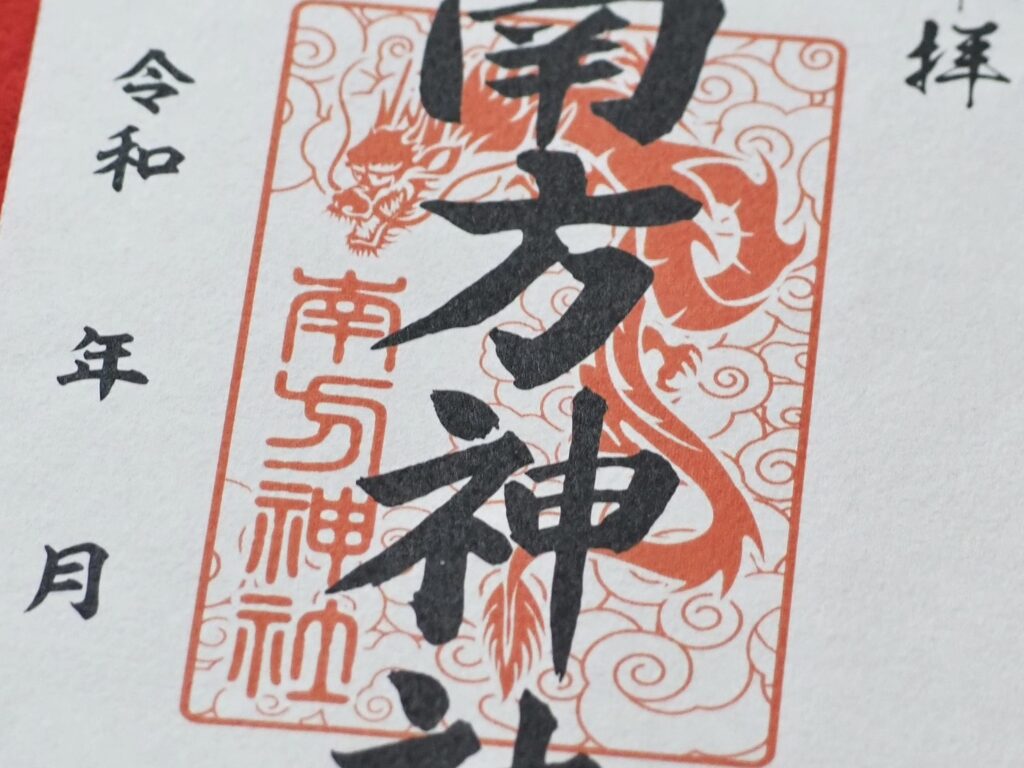 拝
南方神
南方神社
令和 年 月